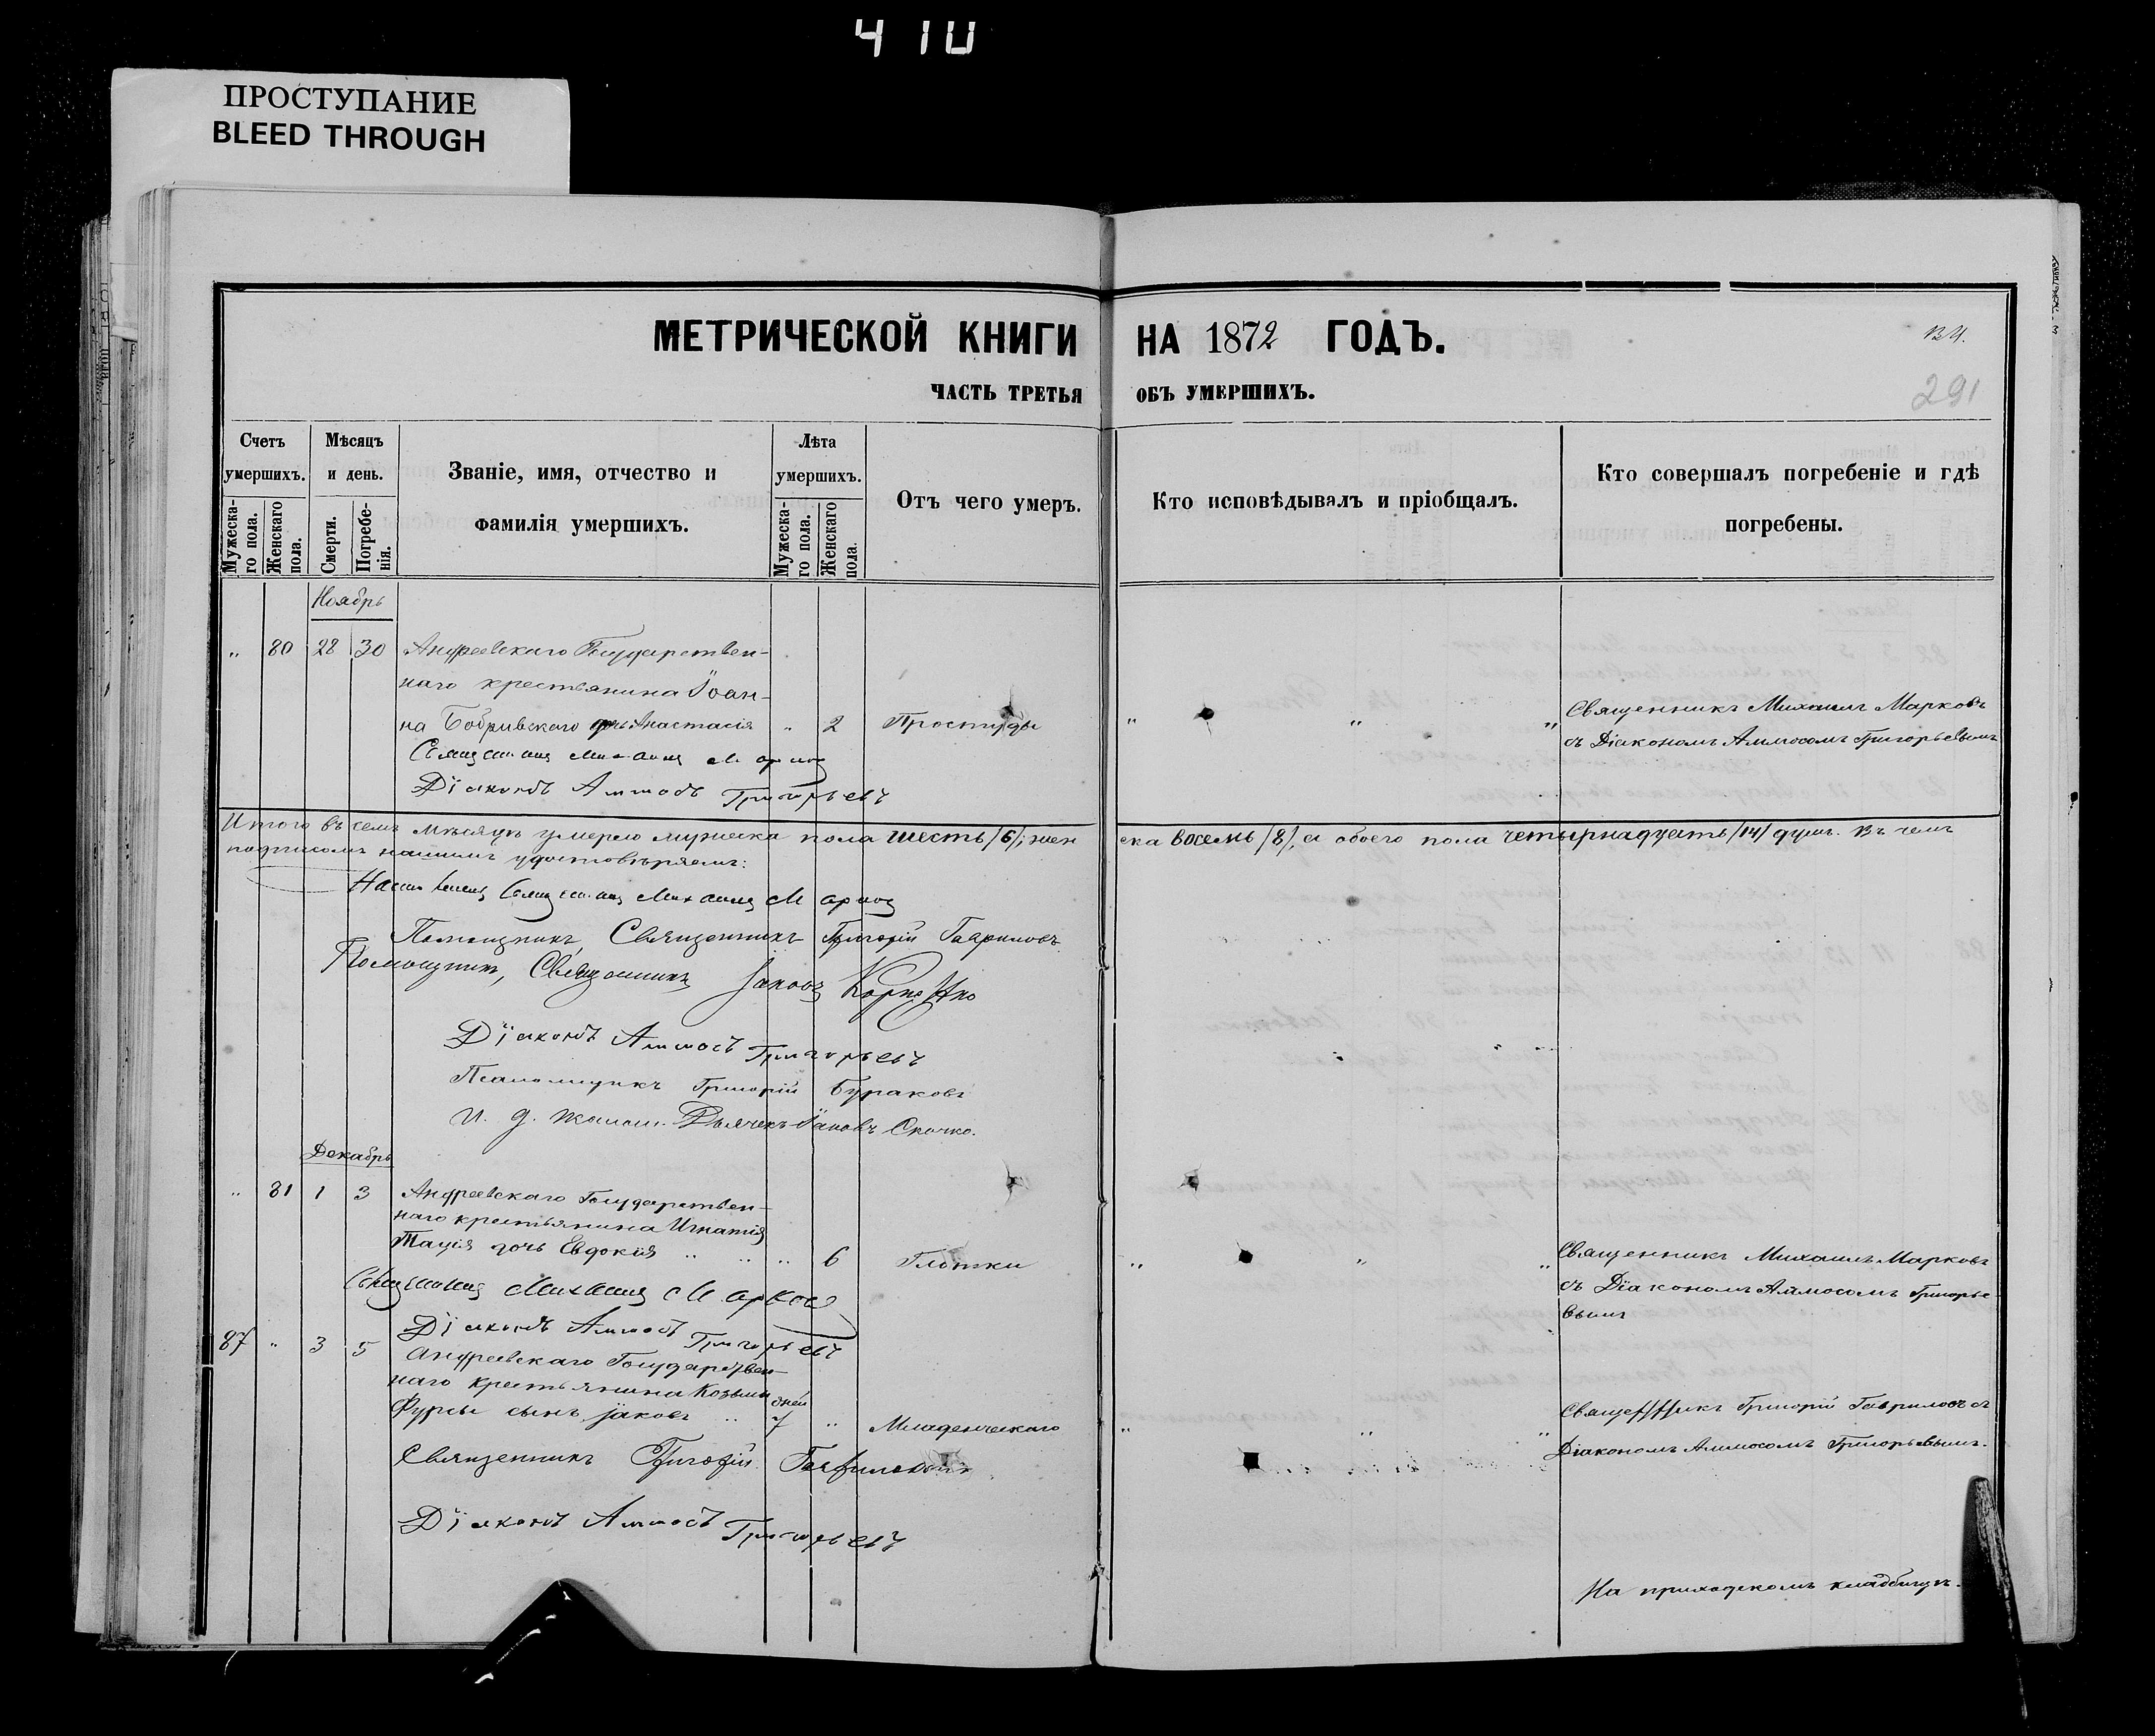 410
ПРОСТУПАНИЕ
BLEED THROUGH
МЕТРИЧЕСКОЙ КНИГИ НА 1872 ГОДЪ.
ЧАСТЬ ТРЕТЬЯ ОБЪ УМЕРШИХЪ.
291
Счетъ умершихъ.
Мужеска-го пола.
Женскаго пола.
Мѣсяцъ и день.
Смерти.
Погребе-нія.
Званіе, имя, отчество и
фамилія умершихъ.
Лѣта умершихъ.
Мужеска-го пола.
Женскаго пола.
Отъ чего умеръ.
Кто исповѣдывалъ и пріобщалъ.
Кто совершалъ погребеніе и гдѣ
погребены.
Ноябрь
„ 80 28 30 Андреевскаго Государствен-
наго крестьянина Іоан-
на Бобривскаго дочь Анастасія „ 2 Простуды „ „ „
Священникъ Михаилъ Марковъ
съ Діакономъ Аммосомъ Григорьевымъ
Священникъ Михаилъ Марковъ
Діаконъ Аммосъ Григорьевъ
Итого въ семъ мѣсяцѣ умерло мужеска пола шесть /6/; жен ска восемь /8/, а обоего пола четырнадцать /14/ душъ. Въ чемъ
подписомъ нашимъ удостовѣряемъ:
Настоятель Священникъ Михаилъ Марковъ
Помощникъ, Священникъ Григорій Гавриловъ
Помощникъ, Священникъ Іаковъ
Діаконъ Аммосъ Григорьевъ
Псаломщикъ Григорій Бураковъ
И. д. Іаковъ Скочко.
Декабрь
„ 81 1 3 Андреевскаго Государствен-
наго крестьянина Игнатія
Тація дочь Евдокія „ „ „ 6 Глотки „ „ „
Священникъ Михаилъ Марковъ
съ Діакономъ Аммосомъ Григорье
вымъ
Священникъ Михаилъ Марковъ
Діаконъ Аммосъ Григорьевъ
87 „ 3 5 Андреевскаго Государствен-
наго крестьянина Козьмы
Фурсы сынъ Іаковъ „ дней 7 „ Младенческаго „ „ „
Священникъ Григорій Гавриловъ съ
Діакономъ Аммосомъ Григорьевымъ.
Священникъ Григорій Гавриловъ
Діаконъ Аммосъ Григорьевъ
На приходскомъ кладбищѣ.